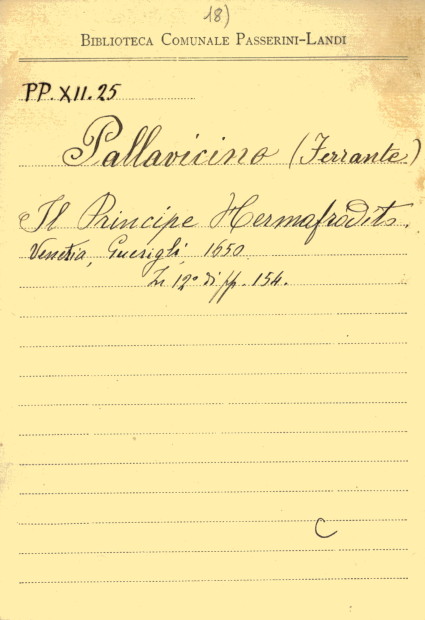 18)
BIBLIOTECA COMUNALE PASSERINI-LANDI
PP. XII. 25
Pallavicino (Ferrante)
Il Principe Hermafrodito.
Venetia, Guerigli, 1650.
In 12° di pp. 154.
C